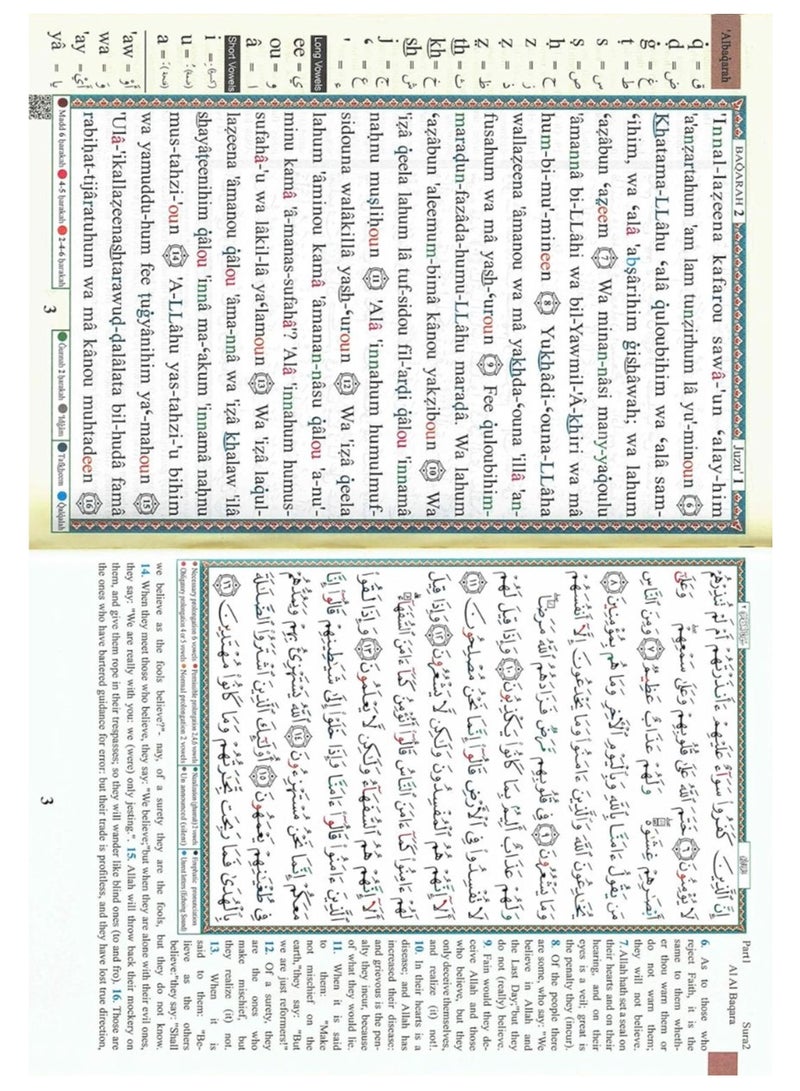 'Albaq̇arah
BAQ̇ARAH 2
Juzu' 1
q̇ = ق
ḍ = ض
ġ = غ
ṭ = ط
s = س
ṣ = ص
ḥ = ح
z = ز
ẓ = ظ
th = ث
kh = خ
sh = ش
j = ج
‘ = ع
' = ء
Long Vowels
ee = ي
ou = و
â = ا
Short Vowels
'aw = أَوْ
wa = وَ
'ay = أَيْ
yâ = يا
'Innal-lazeena kafarou sawâ-'un ‘alay-him
'a'anzartahum 'am lam tunzirhum lâ yu'-minoun 6
Khatama-LLâhu ‘alâ q̇uloubihim wa ‘alâ sam-
‘ihim, wa ‘alâ 'abṣârihim ġishâwah; wa lahum
‘azâbun ‘aẓeem 7 Wa minan-nâsi many-yaq̇oulu
'âmannâ bi-LLâhi wa bil-Yawmil-'Â-khiri wa mâ
hum-bi-mu'-mineen 8 Yukhâdi-‘ouna-LLâha
wallazeena 'âmanou wa mâ yakhda-‘ouna 'illâ 'an-
fusahum wa mâ yash-‘uroun 9 Fee q̇uloubihim-
maraḍun-fazâda-humu-LLâhu maraḍâ. Wa lahum
‘azâbun 'aleemum-bimâ kânou yakziboun 10 Wa
'izâ q̇eela lahum lâ tuf-sidou fil-'arḍi q̇âlou 'innamâ
naḥnu muṣliḥoun 11 'Alâ 'innahum humulmuf-
sidouna walâkillâ yash-‘uroun 12 Wa 'izâ q̇eela
lahum 'âminou kamâ 'âmanan-nâsu q̇âlou 'a-nu'-
minu kamâ 'â-manas-sufahâ'? 'Alâ 'innahum humus-
sufahâ-'u wa lâkil-lâ ya‘lamoun 13 Wa 'izâ laq̇ul-
lazeena 'âmanou q̇âlou 'âma-nnâ wa 'izâ khalaw 'ilâ
shayâṭeenihim q̇âlou 'innâ ma-‘akum 'innamâ naḥnu
mus-tahzi-'oun 14 'A-LLâhu yas-tahzi-'u bihim
wa yamuddu-hum fee ṭuġyânihim ya‘-mahoun 15
'Ulâ-'ikallazeenashtarawuḍ-ḍalâlata bil-hudâ famâ
rabiḥat-tijâratuhum wa mâ kânou muhtadeen 16
Madd 6 ḥarakah 4-5 ḥarakah 2-4-6 ḥarakah Ġunnah 2 ḥarakah 'Idġâm Tafkheem Q̇alq̇alah
3
Part1 Al Al Baqara Sura2
إِنَّ ٱلَّذِينَ كَفَرُوا۟ سَوَآءٌ عَلَيْهِمْ ءَأَنذَرْتَهُمْ أَمْ لَمْ تُنذِرْهُمْ
لَا يُؤْمِنُونَ ٦ خَتَمَ ٱللَّهُ عَلَىٰ قُلُوبِهِمْ وَعَلَىٰ سَمْعِهِمْ ۖ وَعَلَىٰٓ
أَبْصَـٰرِهِمْ غِشَـٰوَةٌ ۖ وَلَهُمْ عَذَابٌ عَظِيمٌ ٧ وَمِنَ ٱلنَّاسِ
مَن يَقُولُ ءَامَنَّا بِٱللَّهِ وَبِٱلْيَوْمِ ٱلْـَٔاخِرِ وَمَا هُم بِمُؤْمِنِينَ ٨
يُخَـٰدِعُونَ ٱللَّهَ وَٱلَّذِينَ ءَامَنُوا۟ وَمَا يَخْدَعُونَ إِلَّآ أَنفُسَهُمْ
وَمَا يَشْعُرُونَ ٩ فِى قُلُوبِهِم مَّرَضٌ فَزَادَهُمُ ٱللَّهُ مَرَضًا ۖ
وَلَهُمْ عَذَابٌ أَلِيمٌۢ بِمَا كَانُوا۟ يَكْذِبُونَ ١٠ وَإِذَا قِيلَ لَهُمْ
لَا تُفْسِدُوا۟ فِى ٱلْأَرْضِ قَالُوٓا۟ إِنَّمَا نَحْنُ مُصْلِحُونَ ١١
أَلَآ إِنَّهُمْ هُمُ ٱلْمُفْسِدُونَ وَلَـٰكِن لَّا يَشْعُرُونَ ١٢ وَإِذَا قِيلَ
لَهُمْ ءَامِنُوا۟ كَمَآ ءَامَنَ ٱلنَّاسُ قَالُوٓا۟ أَنُؤْمِنُ كَمَآ ءَامَنَ ٱلسُّفَهَآءُ ۗ
أَلَآ إِنَّهُمْ هُمُ ٱلسُّفَهَآءُ وَلَـٰكِن لَّا يَعْلَمُونَ ١٣ وَإِذَا لَقُوا۟
ٱلَّذِينَ ءَامَنُوا۟ قَالُوٓا۟ ءَامَنَّا وَإِذَا خَلَوْا۟ إِلَىٰ شَيَـٰطِينِهِمْ قَالُوٓا۟ إِنَّا
مَعَكُمْ إِنَّمَا نَحْنُ مُسْتَهْزِءُونَ ١٤ ٱللَّهُ يَسْتَهْزِئُ بِهِمْ وَيَمُدُّهُمْ
فِى طُغْيَـٰنِهِمْ يَعْمَهُونَ ١٥ أُو۟لَـٰٓئِكَ ٱلَّذِينَ ٱشْتَرَوُا۟ ٱلضَّلَـٰلَةَ
بِٱلْهُدَىٰ فَمَا رَبِحَت تِّجَـٰرَتُهُمْ وَمَا كَانُوا۟ مُهْتَدِينَ ١٦
Necessary prolongation 6 vowels Permissible prolongation 2,4,6 vowels Nazalization (ghunnah) 2 vowels Emphatic pronunciation
Obligatory prolongation 4 or 5 vowels Normal prolongation 2 vowels Un announced (silent) Unrest letters (Echoing Sound)
6. As to those who
reject Faith, it is the
same to them wheth-
er thou warn them or
do not warn them;
they will not believe.
7. Allah hath set a seal on
their hearts and on their
hearing, and on their
eyes is a veil; great is
the penalty they (incur).
8. Of the people there
are some, who say: "We
believe in Allah and
the Last Day;"but they
do not (really) believe.
9. Fain would they de-
ceive Allah and those
who believe, but they
only deceive themselves,
and realize (it) not!.
10. In their hearts is a
disease; and Allah has
increased their disease:
and grievous is the pen-
alty they incur, because
of what they would lie.
11. When it is said
to them: "Make
not mischief on the
earth,"they say: "But
we are just reformers!"
12. Of a surety, they
are the ones who
make mischief, but
they realize (it) not.
13. When it is
said to them: "Be-
lieve as the others
believe:"they say: "Shall
we believe as the fools believe?". nay, of a surety they are the fools, but they do not know.
14. When they meet those who believe, they say: "We believe;"but when they are alone with their evil ones,
they say: "We are really with you: we (were) only jesting.". 15. Allah will throw back their mockery on
them, and give them rope in their trespasses; so they will wander like blind ones (to and fro). 16. Those are
the ones who have bartered guidance for error: but their trade is profitless, and they have lost true direction,
3